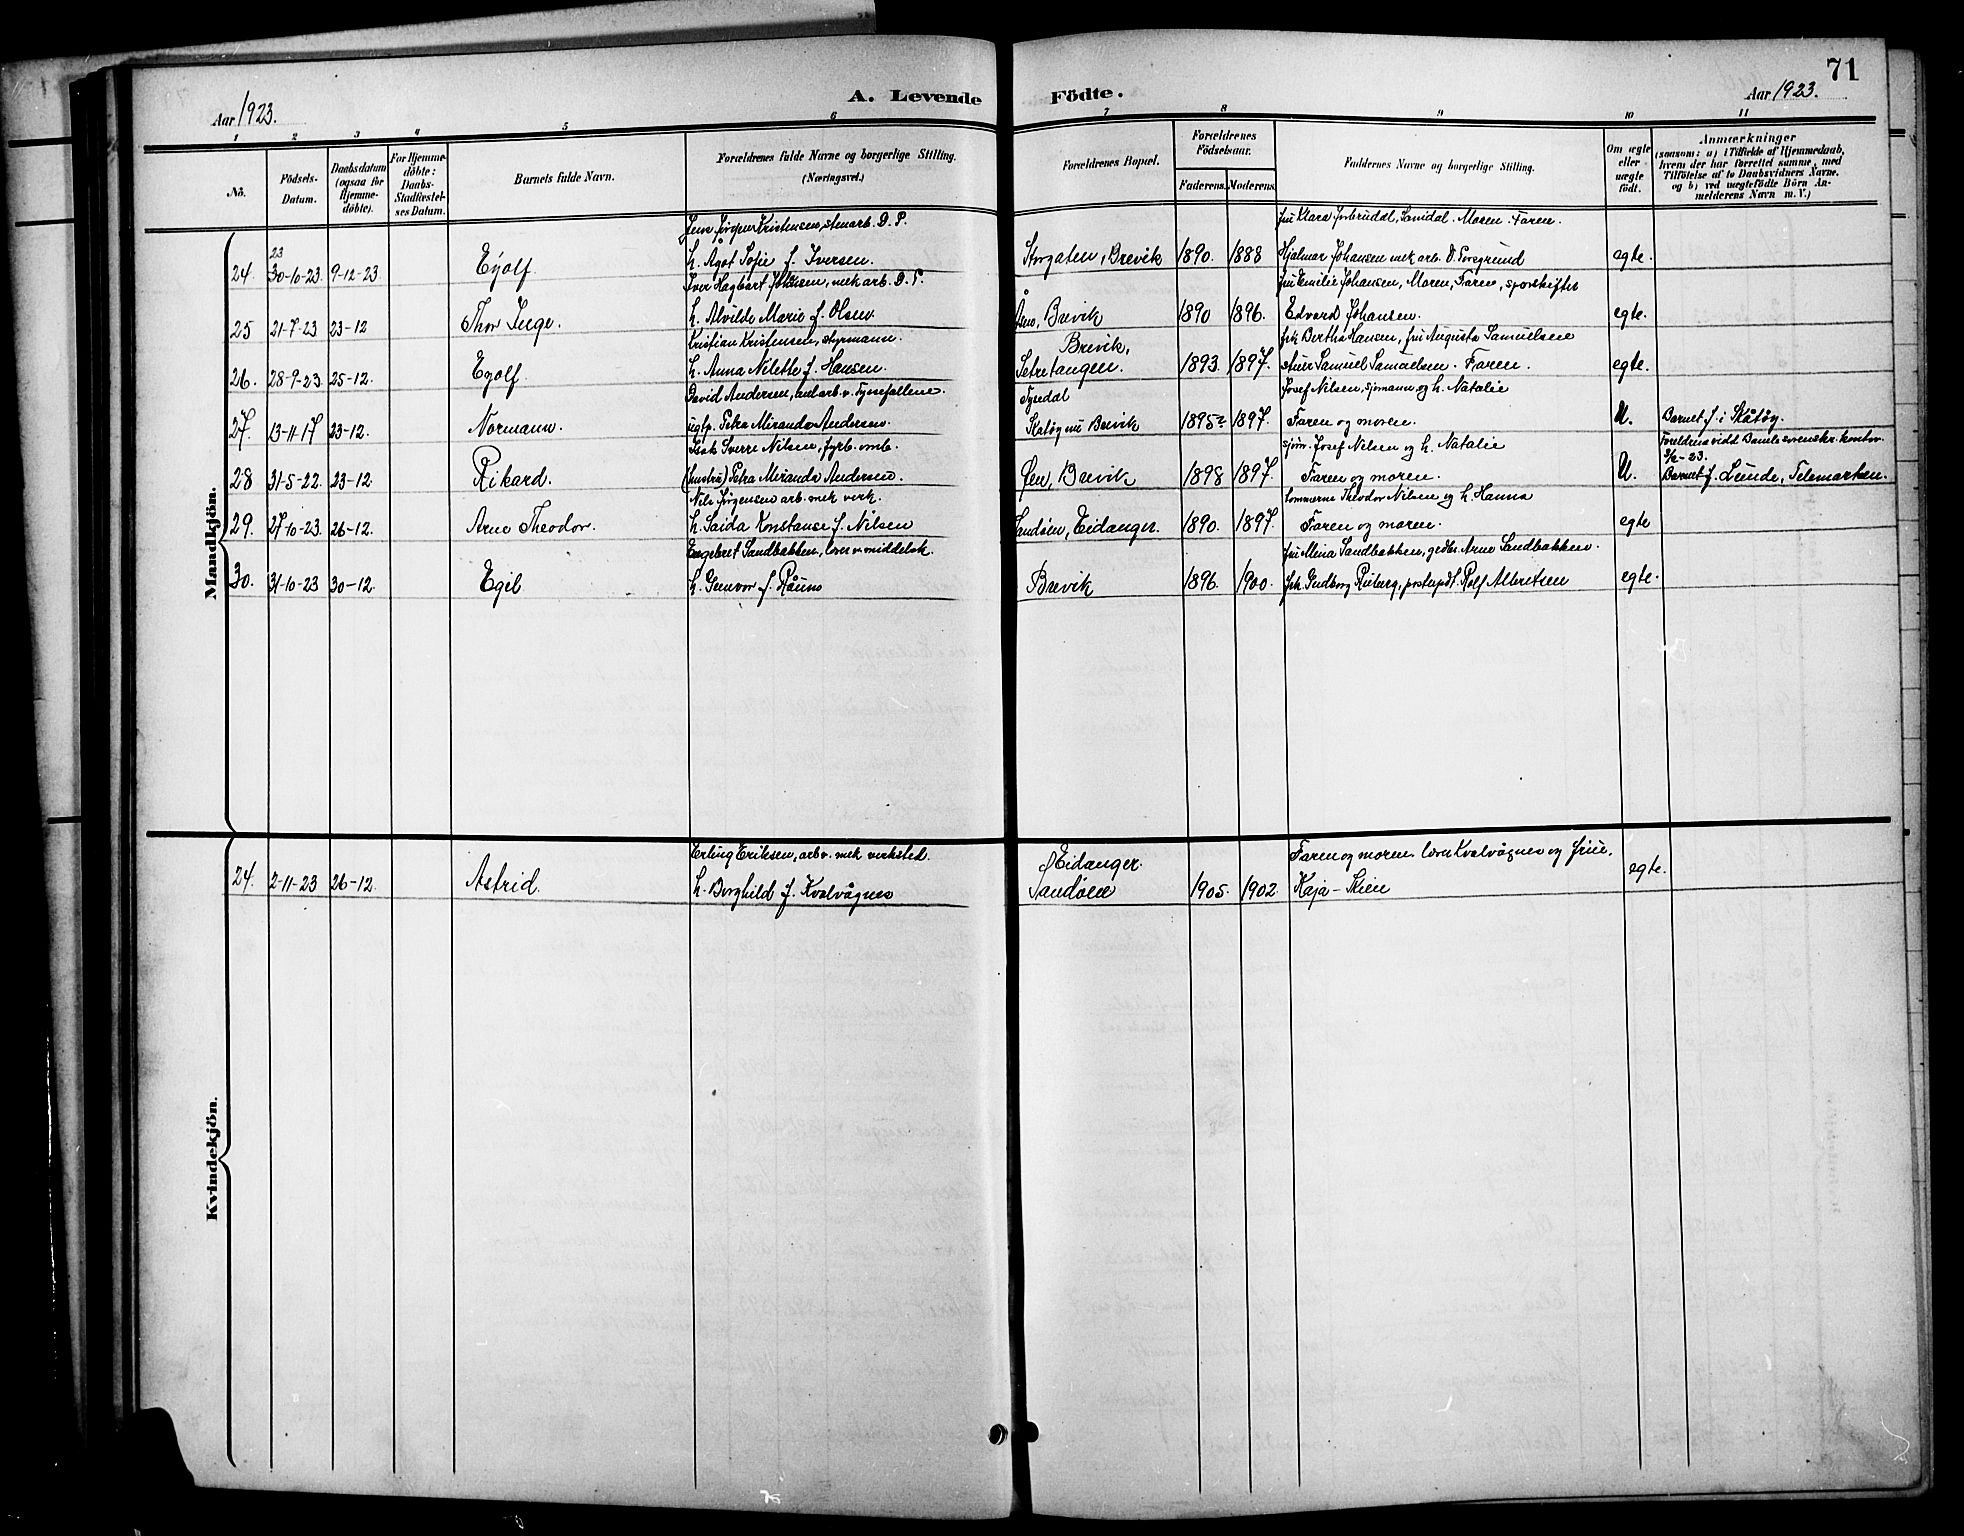 71
Aar 1923.
A. Levende Födte.
Aar 1923.
1 2 3 4 5 6 7 8 9 10 11
No.
Födsels-Datum.
Daabsdatum (ogsaa for Hjemme-döbte).
For Hjemme-döbte: Daabs-Stadfæstel-ses Datum.
Barnets fulde Navn.
Forældrenes fulde Navne og borgerlige Stilling. (Næringsvei.)
Forældrenes Bopæl.
Forældrenes Födselsaar.
Faderens. Moderens.
Faddernes Navne og borgerlige Stilling.
Om ægte eller uægte födt.
Anmærkninger (saasom: a) i Tilfælde af Hjemmedaab, hvem der har forrettet samme, med Tilföielse af to Daabsvidners Navne, og b) ved uægtefödte Börn An-melderens Navn m. V.)
Mandkjön.
Jens Jørgen Kristensen, stenarb. D. P. fru Klara Sanidal. Moren. Faren.
23
24. 30-10-23. 9-12-23 Eyolf. h. Ågot Sofie f. Iversen. Storgaten, Brevik 1890. 1888 Hjalmar Johansen mek arb. Porsgrund egte.
Iver Hagbart Johnsen, mek arb. D. P. fru Emilie Johansen, Moren, Faren, sporskifter
25 21-7-23 23-12 Thor Inge. h. Alvilde Marie f. Olsen. Brevik 1890 1896. Edvard Johansen. egte.
Kristian Kristensen, styrmann. Brevik, frk Bertha Hansen, fru Augusta Samuelsen
26. 28-9-23 25-12. Eyolf. h. Anna Nilette f. Hansen. Setretangen. 1893. 1897. Samuel Samuelsen. Faren. egte.
David Andersen, anl arb. v. Tyssefallene. Tyssedal Josef Nilsen, sjømann og h. Natalie
27. 13-11-17 23-12. Normann. ugtp. Petra Miranda Andersen. Skåtøy nu Brevik 1895? 1897. Faren og moren. U. Barnet f. i Skåtøy.
Isak Sverre Nilsen, fyrb. omb. sjøm. Josef Nilsen og h. Natalie Foreldrene vidd Bamle sorenskr. kontor
28 31-5-22. 23-12. Rikard. (hustru) Petra Miranda Andersen. Øen, Brevik 1898 1897. Faren og moren. U. 3/2-23. Barnet f. Lunde, Telemarken.
Nils Jørgensen arb. mek verk. Theodor Nilsen og h. Hanna
29. 27-10-23. 26-12. Arne Theodor. h. Saida Konstanse f. Nilsen Sandøen, Eidanger. 1890. 1897. Faren og moren. egte
Engebret Sandbakken, lærer v. middelsk. fru Mina Sandbakken, gedbr. Arne Sandbakken.
30. 31-10-23 30-12. Egil h. Gunvor f. Brevik 1896. 1900. frk. Gudborg postexpdt. Rolf Albretsen egte.
Kvindekjön.
Erling Eriksen, arb v. mek verksted. Eidanger. Faren og moren. lærer Kvalvågnes og frue,
24. 2-11-23 26-12. Astrid. h. Borghild f. Kvalvågnes Sandøen 1905. 1902. Kaja - Skien egte.